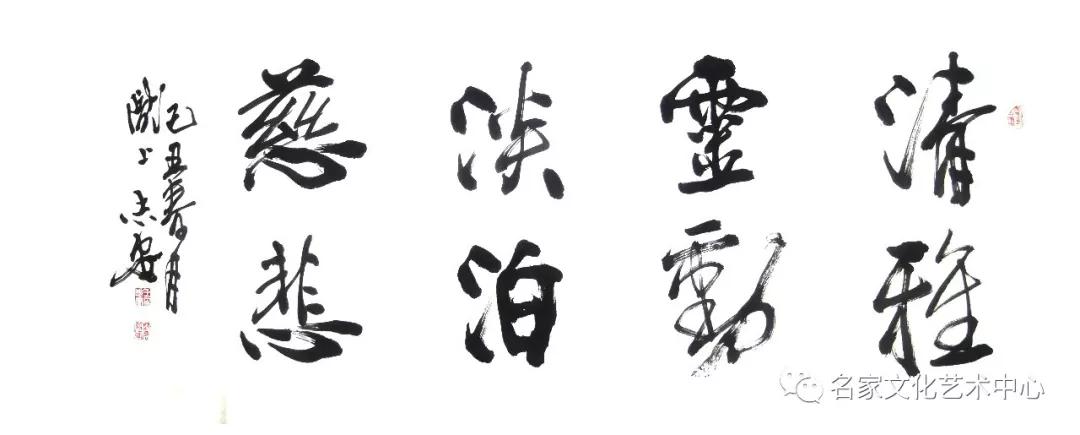 清雅
靈動
淡泊
慈悲
己丑春月
隴上
名家文化艺术中心